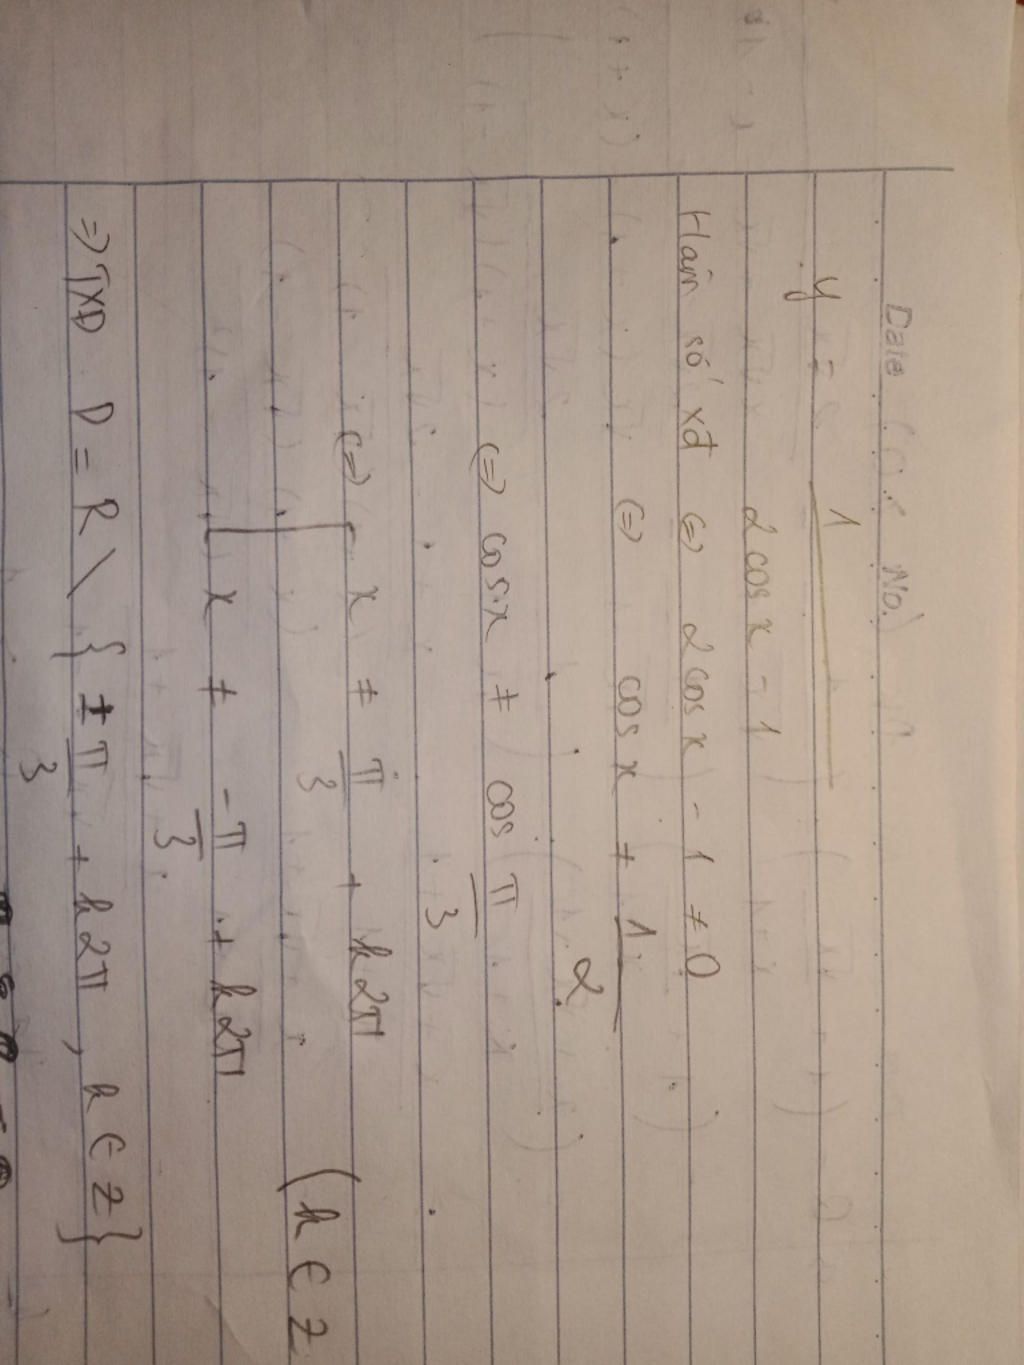 Date No.
y = 1
2cos x - 1
Hàm số xđ (=) 2cos x - 1 ≠ 0
(=) cos x ≠ 1
2
(=) cosx ≠ cos π
3
(=) [ x ≠ π + k2π
3
(k ∈ Z
x ≠ -π + k2π
3
=) TXD D = R \ { ± π + k2π , k ∈ Z }
3